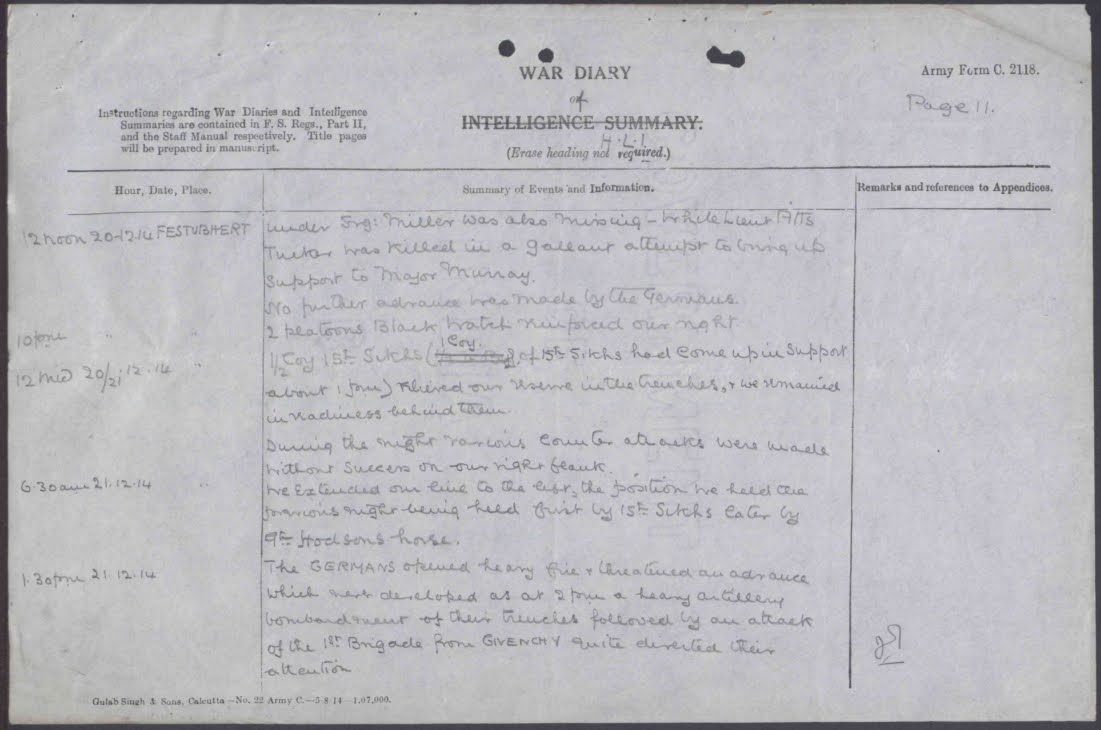 WAR DIARY
of
INTELLIGENCE SUMMARY.
H.L.I.
(Erase heading not required.)
Army Form C. 2118.
Page 11.
Instructions regarding War Diaries and Intelligence
Summaries are contained in F. S. Regs., Part II,
and the Staff Manual respectively. Title pages
will be prepared in manuscript.
Hour, Date, Place.
Summary of Events and Information.
Remarks and references to Appendices.
12 noon 20-12.14 FESTUBHERT
under Miller was also missing - while Lieut
Tucker was killed in a gallant attempt to bring up
Support to Major Murray.
No further advance was made by the Germans.
10 pm " "
2 platoons Black Watch reinforced our right
12 mid 20/21 12.14 "
½ Coy 15th Sikhs (1 Coy. of 15th Sikhs had come up in support
about 1 pm) relieved our reserve in the trenches, & we remained
in readiness behind them.
During the night various counter attacks were made
without success on our right flank.
6.30am 21.12.14 "
We extended our line to the left, the position we held the
previous night being held first by 15th Sikhs later by
9th Hodsons horse.
1.30pm 21.12.14
The GERMANS opened heavy fire & threatened an advance
which never developed as at 2 pm a heavy artillery
bombardment of their trenches followed by an attack
of the 1st Brigade from GIVENCHY quite diverted their
attention
Gulab Singh & Sons, Calcutta—No. 22 Army C.—5-8-14—1,07,000.